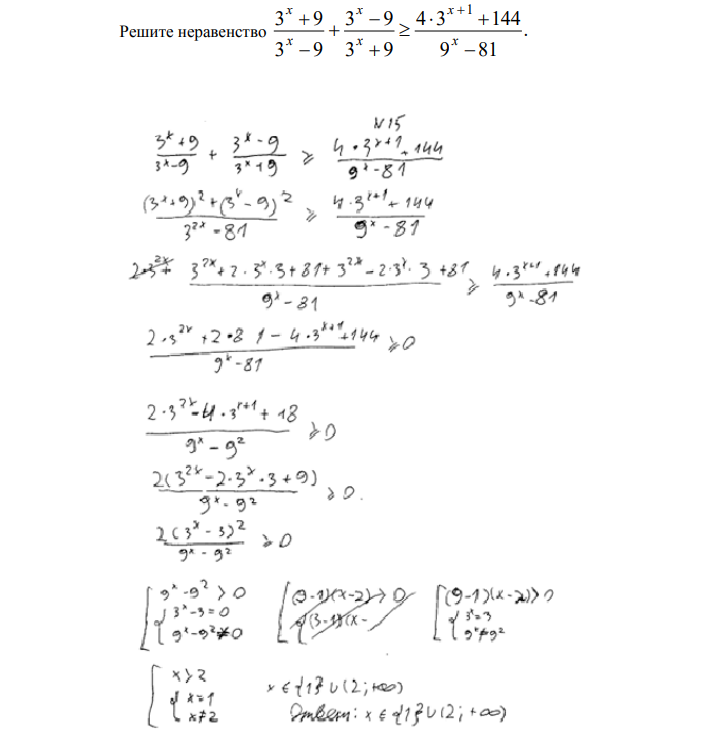 Решите неравенство (3^x + 9)/(3^x − 9) + (3^x − 9)/(3^x + 9) ≥ (4·3^(x+1) + 144)/(9^x − 81).
N15
(3^x + 9)/(3^x − 9) + (3^x − 9)/(3^x + 9) ≥ (4·3^(x+1) + 144)/(9^x − 81)
((3^x + 9)^2 + (3^x − 9)^2)/(3^(2x) − 81) ≥ (4·3^(x+1) + 144)/(9^x − 81)
(3^(2x) + 2·3^x·3 + 81 + 3^(2x) − 2·3^x·3 + 81)/(9^x − 81) ≥ (4·3^(x+1) + 144)/(9^x − 81)
(2·3^(2x) + 2·81 − 4·3^(x+1) + 144)/(9^x − 81) ≥ 0
(2·3^(2x) − 4·3^(x+1) + 18)/(9^x − 9^2) ≥ 0
2(3^(2x) − 2·3^x·3 + 9)/(9^x − 9^2) ≥ 0.
2(3^x − 3)^2/(9^x − 9^2) ≥ 0
[ 9^x − 9^2 > 0 [ (9−1)(x−2) > 0 [ (9−1)(x−2) > 0
{ 3^x − 3 = 0 { (3−1)(x− { 3^x = 3
9^x − 9^2 ≠ 0 9^x ≠ 9^2
[ x > 2
{ x = 1 x ∈ {1} ∪ (2; +∞)
x ≠ 2 Ответ: x ∈ {1} ∪ (2; +∞)